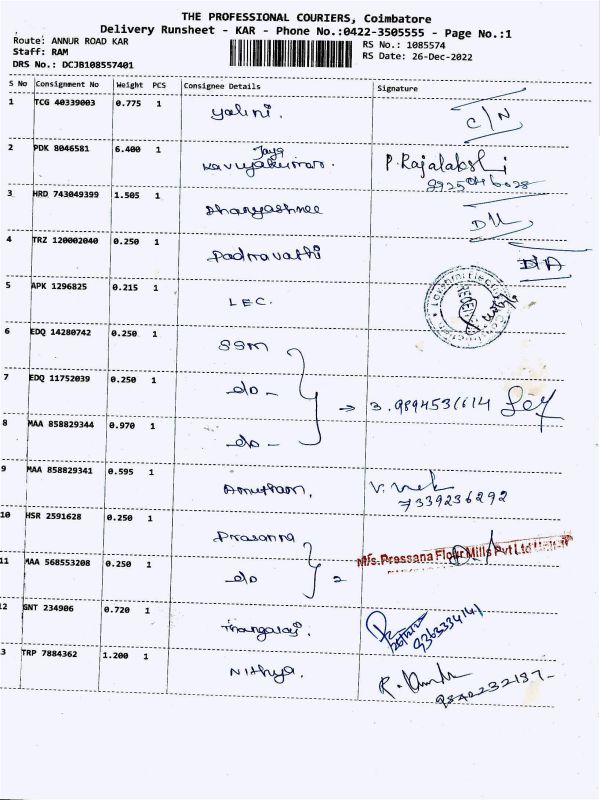 THE PROFESSIONAL COURIERS, Coimbatore
Delivery Runsheet - KAR - Phone No.:0422-3505555 - Page No.:1
Route: ANNUR ROAD KAR
RS No.: 1085574
Staff: RAM
RS Date: 26-Dec-2022
DRS No.: DCJB108557401
S No Consignment No Weight PCS Consignee Details Signature
1 TCG 40339003 0.775 1 Yalini. C/N
2 PDK 8046581 6.400 1 Jaya Kavyakumar. P. Rajalakshi
3 HRD 743049399 1.505 1 Dhanyashree D/L
4 TRZ 120002040 0.250 1 Padmavathi
5 APK 1296825 0.215 1 LEC.
6 EDQ 14280742 0.250 1 SSM
7 EDQ 11752039 0.250 1 -do- ⇒ 3. 9894531614
8 MAA 858829344 0.970 1 -do-
9 MAA 858829341 0.595 1 Amutham. 7339236292
10 HSR 2591628 0.250 1 Prasanna
M/s.Pressana Flour Mills Pvt Ltd
11 MAA 568553208 0.250 1 do 2
12 GNT 234906 0.720 1 Thangaraj. 9363334141
3 TRP 7884362 1.200 1 Nithya. 9840232187-